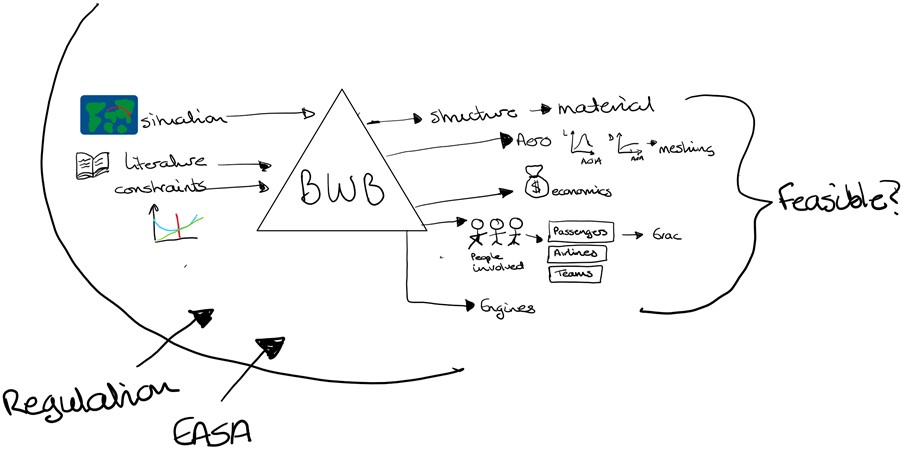 situation
Literature
constraints
BWB
structure
material
Aero
L
AOA
D
AOA
meshing
$
economics
People
involved
Passengers
Airlines
Teams
Evac
Engines
Feasible?
Regulation
EASA